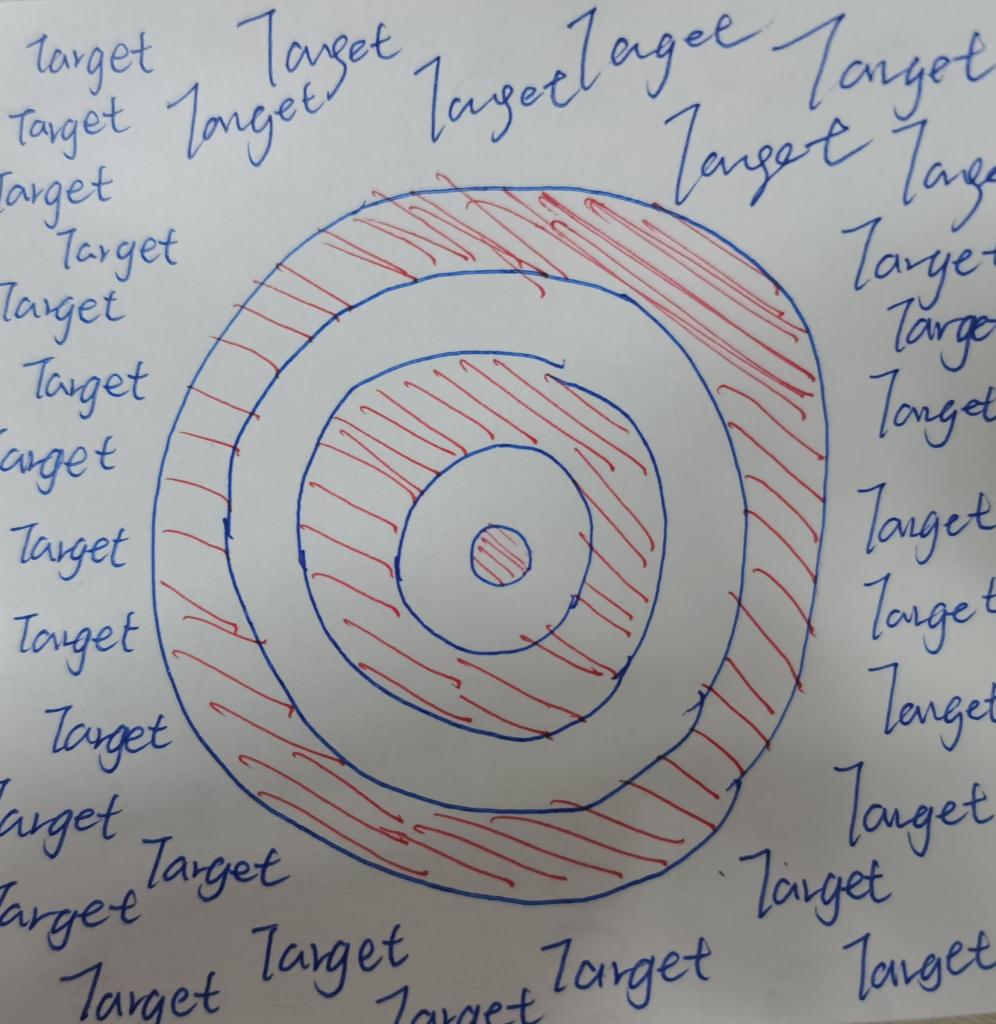 Target Target Taget Target
Target Target Target Target Targe
Target
Target Target
Target Targe
Target Target
arget
Target Target
Target Target
Target Target
Target Target
Target Target
Target Target
Target Target Target
Target Target